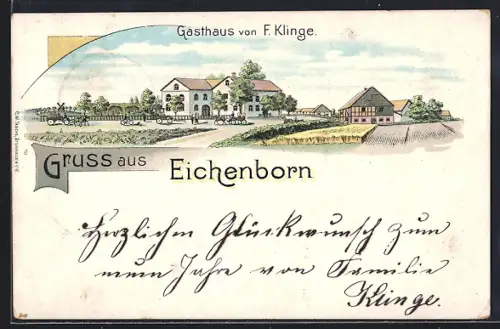 Gasthaus von F. Klinge.
Gruss aus
Eichenborn
Herzlichen Glückwunsch zum
neuen Jahre von Familie
Klinge.